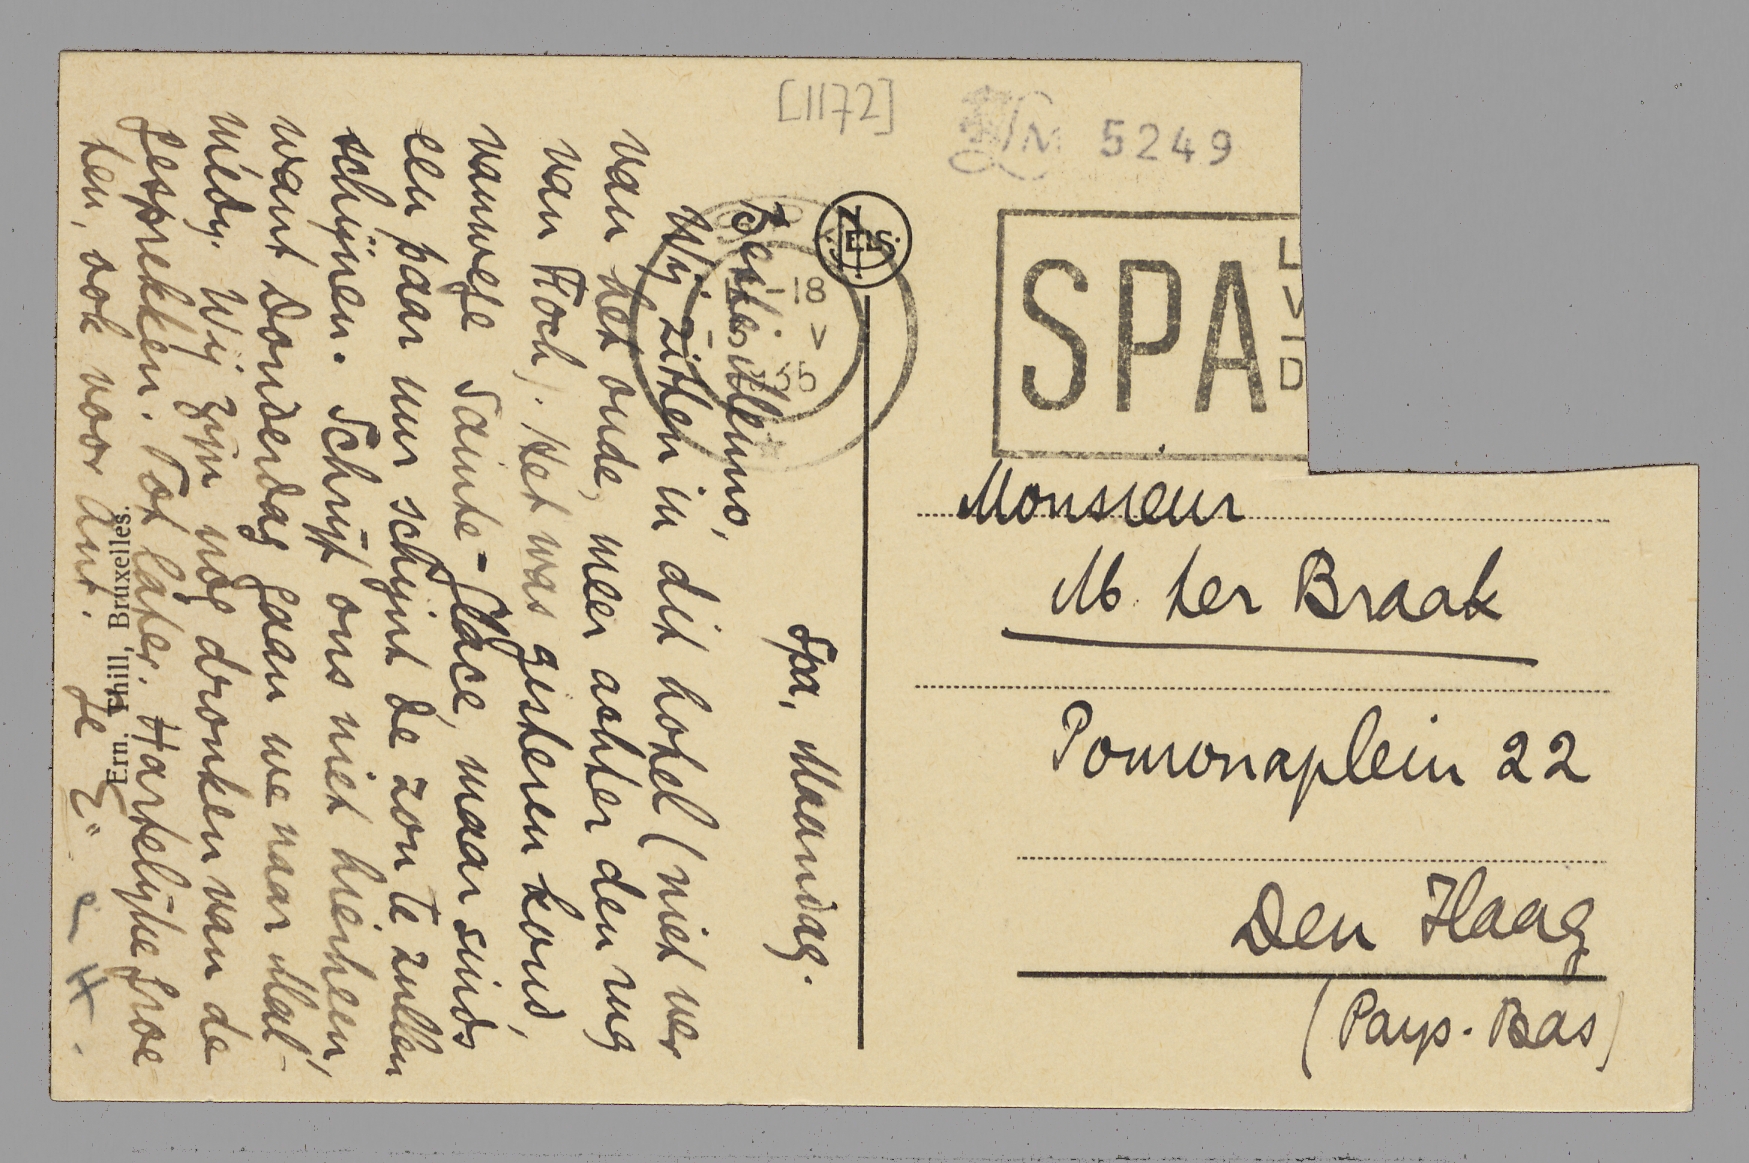 [1172]
LM 5249
NELS
-18
V
35
SPA
L
V
T
D
Spa, Maandag.
Beste Menno,
Wij zitten in dit hotel (niet ver
van het oude, meer achter den rug
van Foch). Het was gisteren koud,
vanwege Sainte-Glace, maar sinds
een paar uur schijnt de zon te zullen
schijnen. Schrijf ons niet hierheen,
want Donderdag gaan we naar Mal-
médy. Wij zijn nog dronken van de
gesprekken. Tot later. Hartelijke groe-
ten, ook voor Ant.
Je E.
Ern. Thill, Bruxelles.
Monsieur
M. ter Braak
Pomonaplein 22
Den Haag
(Pays-Bas)